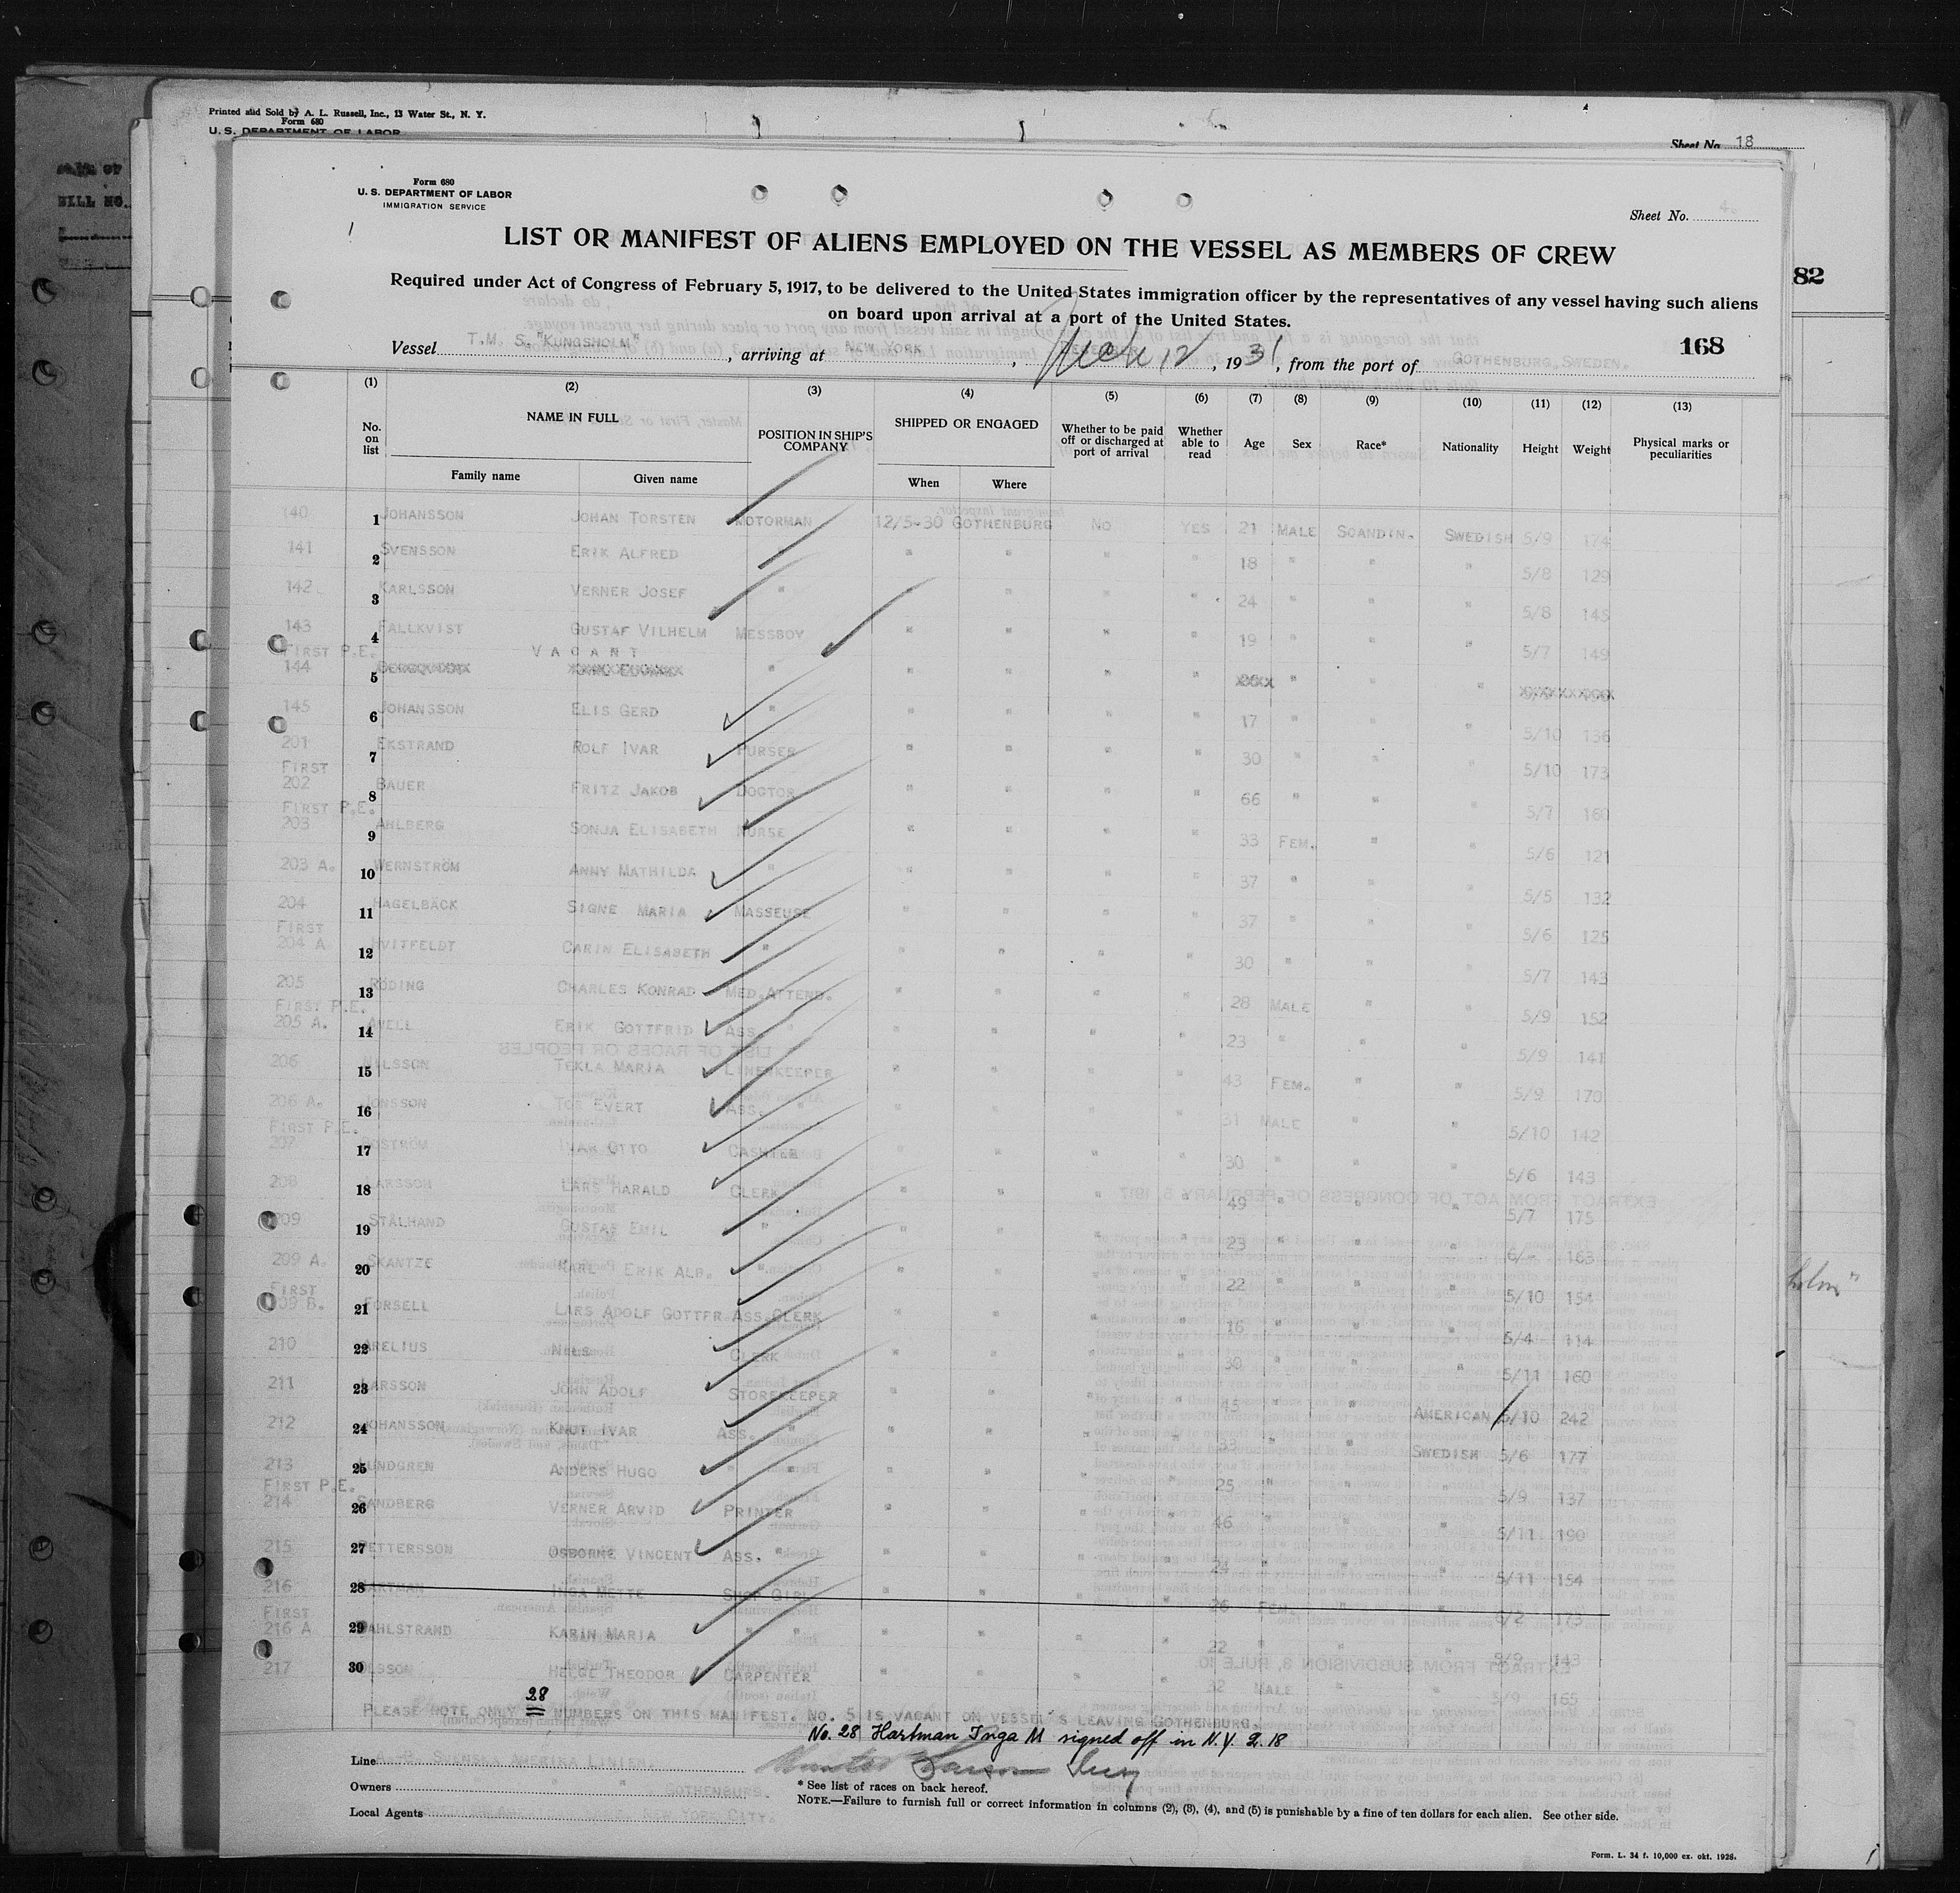 Printed and Sold by A. L. Russell, Inc., 13 Water St., N. Y.
Form 680
U. S. DEPARTMENT OF LABOR
Sheet No. 18
BILL NO.
82
Form 680
U. S. DEPARTMENT OF LABOR
IMMIGRATION SERVICE
Sheet No. 4.
LIST OR MANIFEST OF ALIENS EMPLOYED ON THE VESSEL AS MEMBERS OF CREW
Required under Act of Congress of February 5, 1917, to be delivered to the United States immigration officer by the representatives of any vessel having such aliens
on board upon arrival at a port of the United States.
168
Vessel T.M. S. "KUNGSHOLM", arriving at NEW YORK, March 12, 1931, from the port of GOTHENBURG, SWEDEN.
(1) (2) (3) (4) (5) (6) (7) (8) (9) (10) (11) (12) (13)
No. on list NAME IN FULL POSITION IN SHIP'S COMPANY SHIPPED OR ENGAGED Whether to be paid off or discharged at port of arrival Whether able to read Age Sex Race* Nationality Height Weight Physical marks or peculiarities
Family name Given name When Where
140 1 JOHANSSON JOHAN TORSTEN MOTORMAN 12/5-30 GOTHENBURG NO YES 21 MALE SCANDIN. SWEDISH 5/9 174
141 2 SVENSSON ERIK ALFRED " " " " " 18 " " " 5/8 129
142 3 KARLSSON VERNER JOSEF " " " " " 24 " " " 5/8 145
143 4 FALLKVIST GUSTAF VILHELM MESSBOY " " " " 19 " " " 5/7 149
FIRST P.E. VACANT
144 5 " " " " " " " "
145 6 JOHANSSON ELIS GERD " " " " " 17 " " " 5/10 136
201 7 EKSTRAND ROLF IVAR PURSER " " " " 30 " " " 5/10 173
FIRST
202 8 BAUER FRITZ JAKOB DOCTOR " " " " 66 " " " 5/7 160
FIRST P.E.
203 9 AHLBERG SONJA ELISABETH NURSE " " " " 33 FEM. " " 5/6 121
203 A. 10 WERNSTRÖM ANNY MATHILDA " " " " " 37 " " " 5/5 132
204 11 HAGELBÄCK SIGNE MARIA MASSEUSE " " " " 37 " " " 5/6 125
FIRST
204 A 12 HVITFELDT CARIN ELISABETH " " " " " 30 " " " 5/7 143
205 13 RÖDING CHARLES KONRAD MED.ATTEND. " " " " 28 MALE " " 5/9 152
FIRST P.E.
205 A. 14 AVELL ERIK GOTTFRID ASS. " " " " " 23 " " " 5/9 141
206 15 NILSSON TEKLA MARIA LINENKEEPER " " " " 43 FEM. " " 5/9 170
206 A. 16 JONSSON EVERT ASS. " " " " " 31 MALE " " 5/10 142
FIRST P.E.
207 17 IVAR OTTO CASHIER " " " " 30 " " " 5/6 143
208 18 LARSSON LARS HARALD CLERK " " " " 49 " " " 5/7 175
209 19 STÅLHAND GUSTAF EMIL " " " " " 23 " " " 6/- 163
209 A. 20 SKANTZE KARL ERIK ALB. " " " " " 22 " " " 5/10 154
FIRST
209 B. 21 FORSELL LARS ADOLF GOTTFR ASS.CLERK " " " " 16 " " " 5/4 114
210 22 ARELIUS NILS CLERK " " " " 30 " " " 5/11 160
211 23 LARSSON JOHN ADOLF STOREKEEPER " " " " 45 " " AMERICAN 5/10 242
212 24 JOHANSSON KNUT IVAR ASS. " " " " " 33 " " SWEDISH 5/6 177
213 25 LUNDGREN ANDERS HUGO " " " " " " 25 " " " 5/9 137
FIRST P.E.
214 26 SANDBERG VERNER ARVID PRINTER " " " " 46 " " " 5/11 190
215 27 PETTERSSON OSBORNE VINCENT ASS. " " " " " 24 " " " 5/11 154
216 28 HARTMAN INGA METTE SHOP GIRL " " " " 26 FEM. " " 6/2 173
FIRST
216 A 29 DAHLSTRAND KARIN MARIA " " " " " " 22 " " " 5/9 143
217 30 OLSSON HELGE THEODOR CARPENTER " " " " 32 MALE " " 5/9 165
28
PLEASE NOTE ONLY NUMBERS ON THIS MANIFEST. NO. 5 IS VACANT ON VESSEL'S LEAVING GOTHENBURG.
No. 28 Hartman Inga M signed off in N.Y. 2.18
Line SVENSKA AMERIKA LINIEN.
Owners " " GOTHENBURG.
Local Agents NEW YORK CITY.
* See list of races on back hereof.
NOTE.—Failure to furnish full or correct information in columns (2), (3), (4), and (5) is punishable by a fine of ten dollars for each alien. See other side.
Form. L. 34 f. 10,000 ex. okt. 1928.